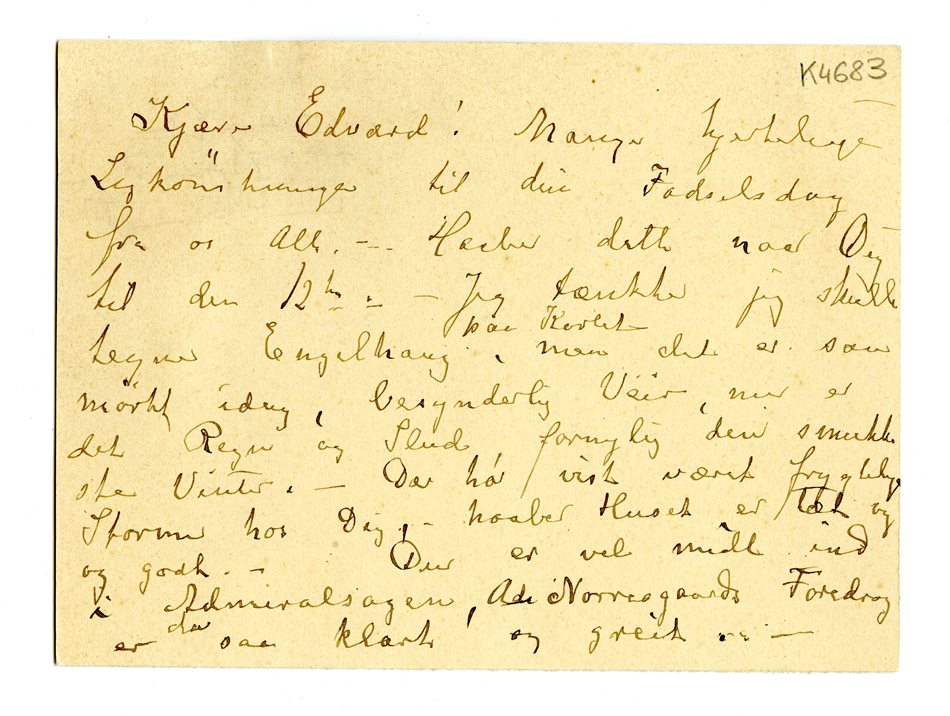 K4683
Kjære Edvard! Mange hjertelige
Lykönskninger til din Fødselsdag
fra os Alle. — Haaber dette naar Dig
til den 12te. — Jeg tænkte jeg skulle
paa Kortet
tegne Engelhaug, men det er saa
mörkt idag, besynderlig Veir, nu er
det Regn og Slud fornylig den smukke
ste Vinter. — Der har vist været frygtelige
Storme hos Dig, — haaber Huset er tæt og
og godt. — Du er vel midt ind
i Admiralsagen, Norregaards Foredrag
er da saa klart og greit —